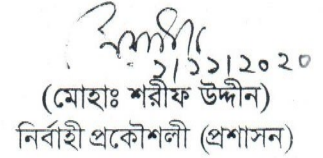 ২/১১/2020
(মোহাঃ শরীফ উদ্দীন)
নির্বাহী প্রকৌশলী (প্রশাসন)